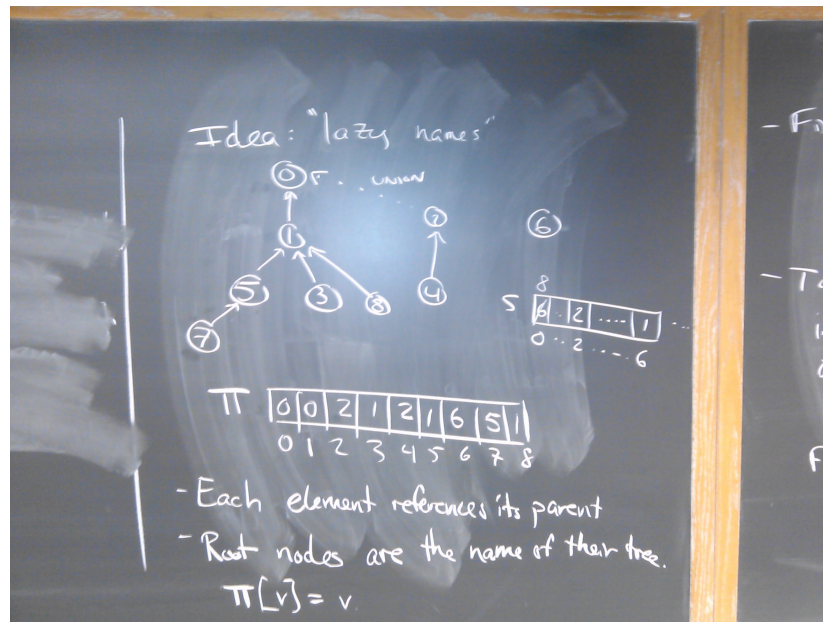 Idea: "lazy names"
0 UNION
1 2 6
5 3 8 4
7
8
S 6 .. 2 .... 1 ...
0 .. 2 .... 6
π 0 0 2 1 2 1 6 5 1
0 1 2 3 4 5 6 7 8
- Each element references its parent
- Root nodes are the name of their tree.
π[v] = v